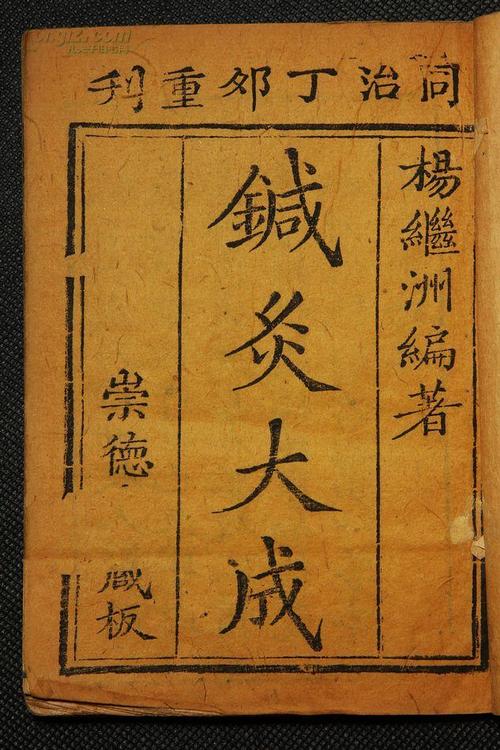 同治丁卯重刊
楊繼洲編著
鍼灸大成
崇德
藏板